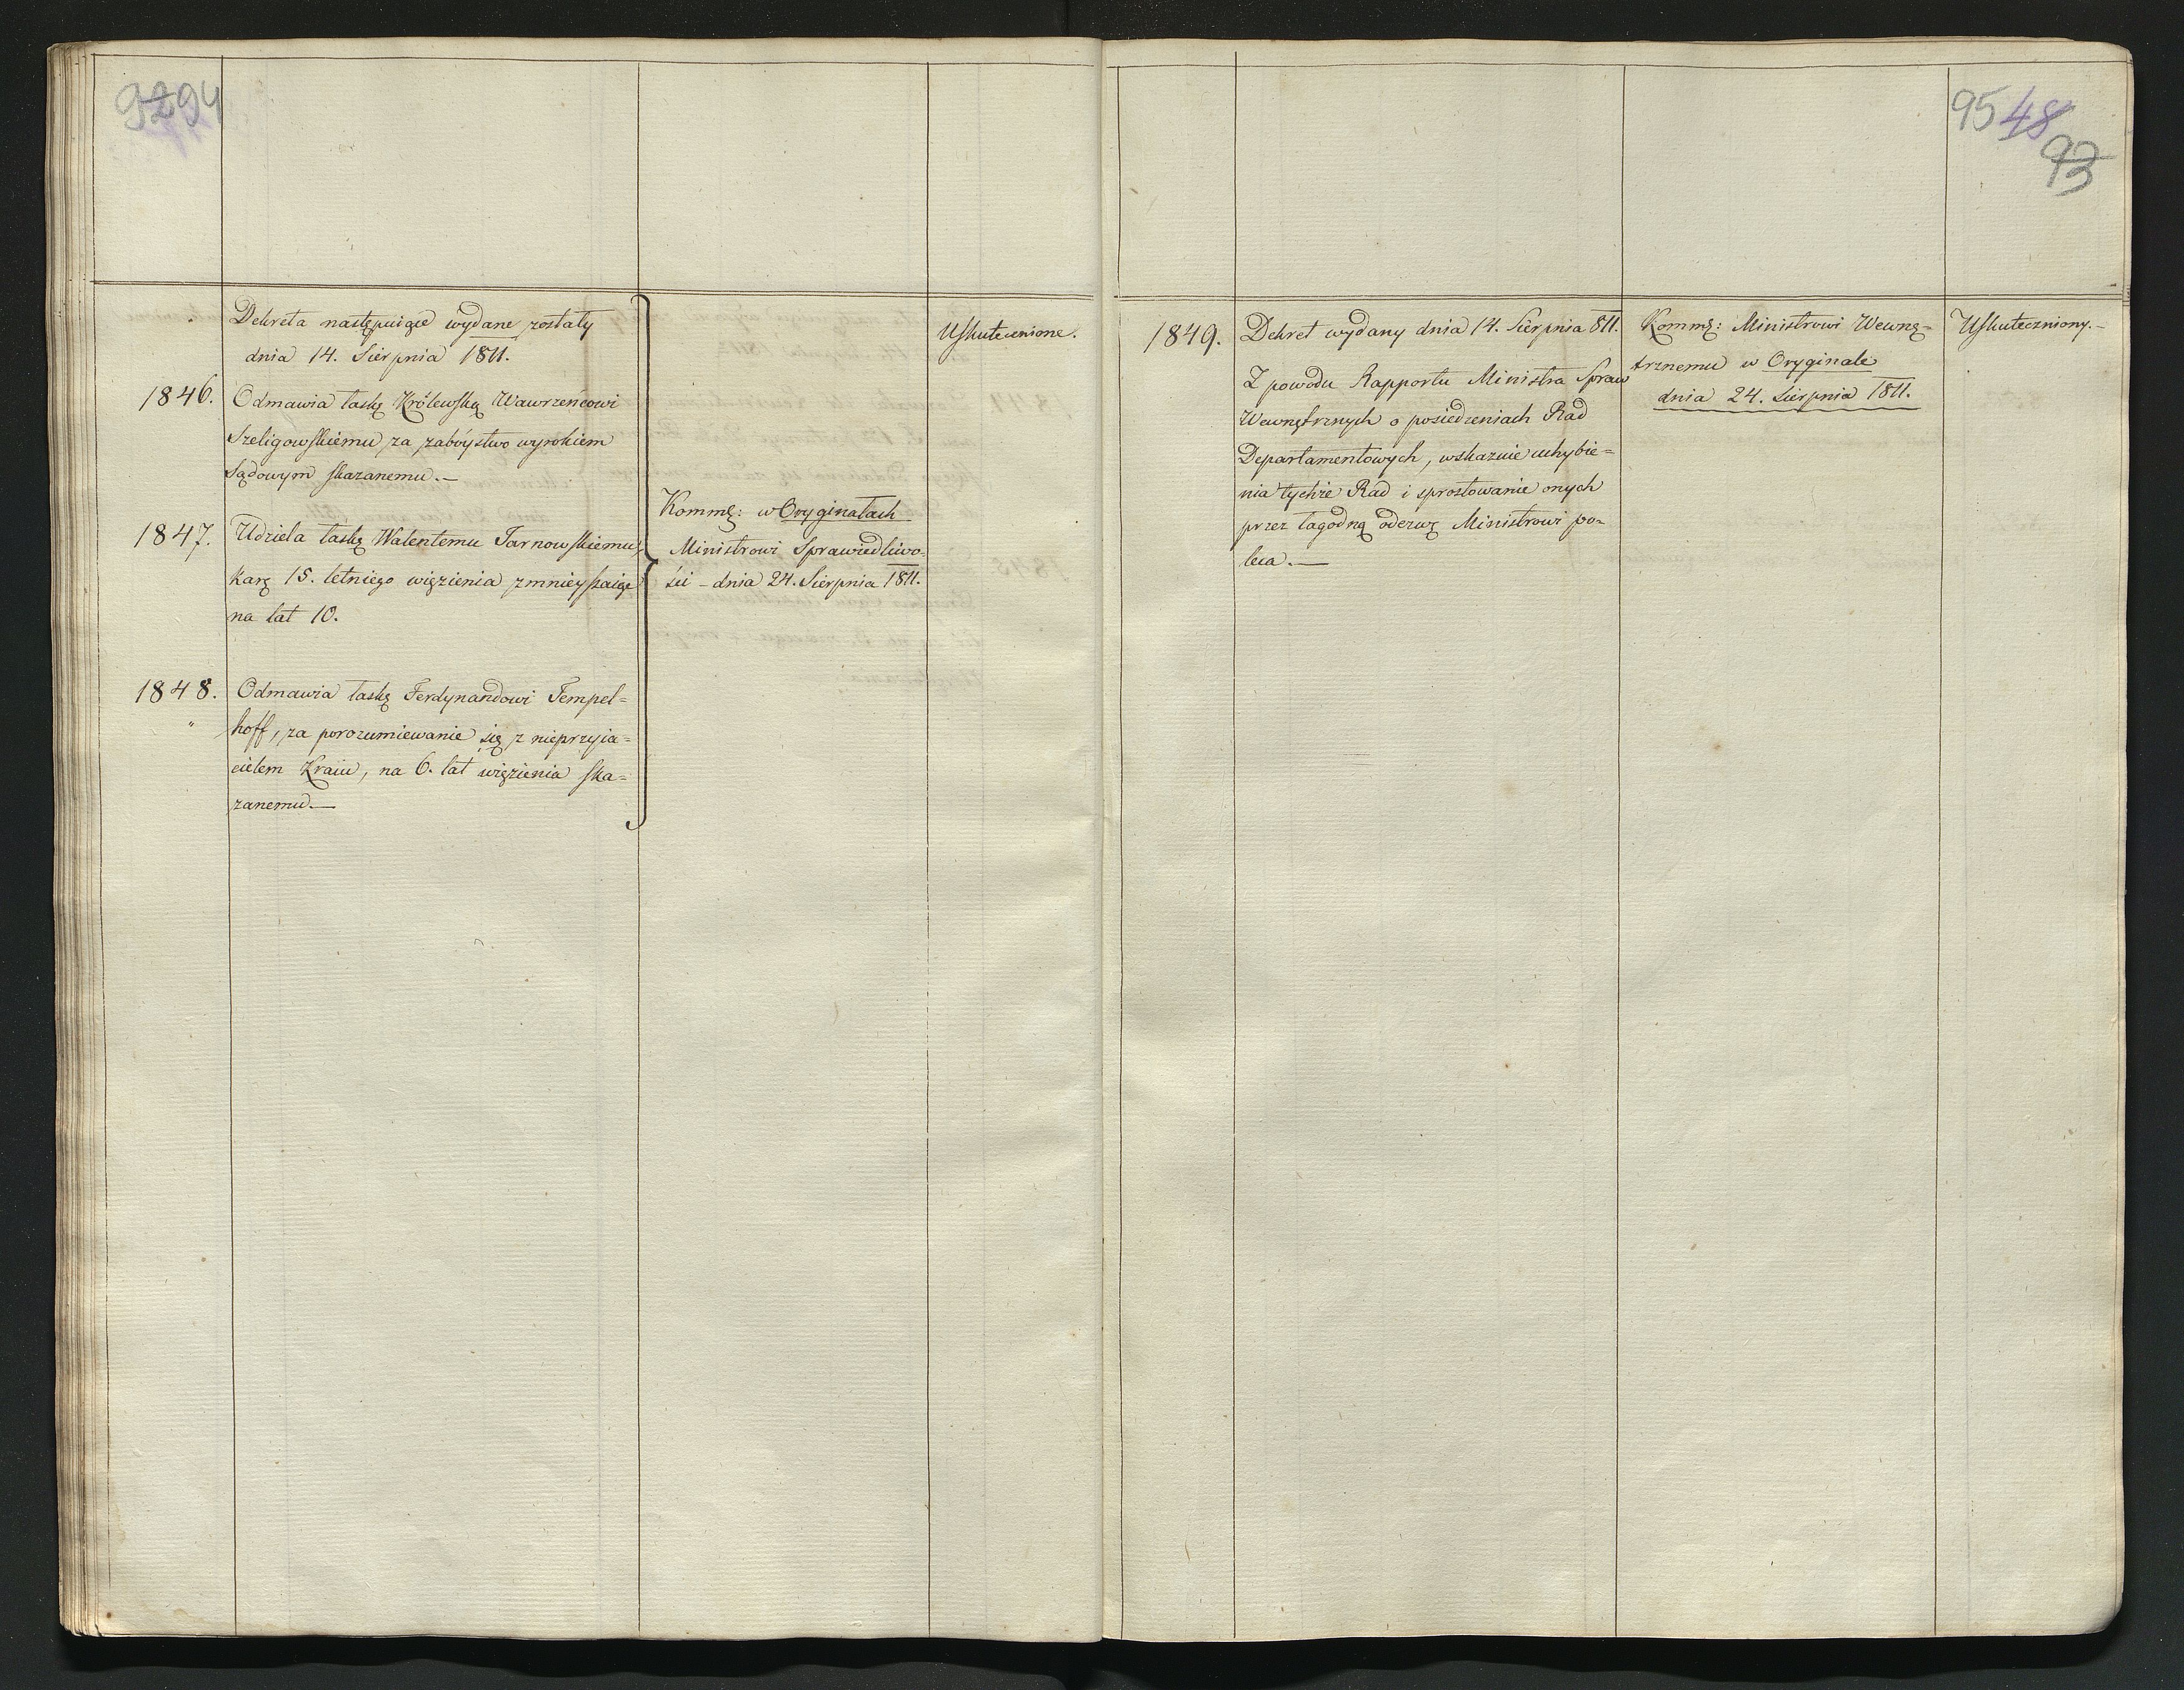 9294
Dekreta następuiące wydane zostały
dnia 14. Sierpnia 1811.
1846. Odmawia łaskę Królewską Wawrzeńcowi
Szeligowskiemu za zabóystwo wyrokiem
Sądowym skazanemu.—
1847. Udziela łaskę Walentemu Tarnowskiemu,
karę 15. letniego więzienia zmnieyszaiąc
na lat 10.
1848. Odmawia łaskę Ferdynandowi Tempel=
hoff, za porozumiewanie się z nieprzyia=
cielem Kraiu, na 6. lat więzienia ska=
zanemu.—
Kommę: w Oryginałach
Ministrowi Sprawiedliwo-
ści – dnia 24. Sierpnia 1811.
Uskutecznione.
95 48
93
1849. Dekret wydany dnia 14. Sierpnia 811.
Z powodu Rapportu Ministra Spraw
Wewnętrznych o posiedzeniach Rad
Departamentowych, wskazuie uchybie=
nia tychże Rad i sprostowanie onych
przez łagodną odezwę Ministrowi po=
leca.—
Kommę: Ministrowi Wewnę=
trznemu w Oryginale
dnia 24. Sierpnia 1811.
Uskuteczniony.–